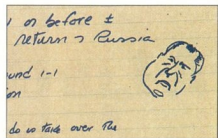 or before ±
return → Russia
und 1-1
on
do us take over the